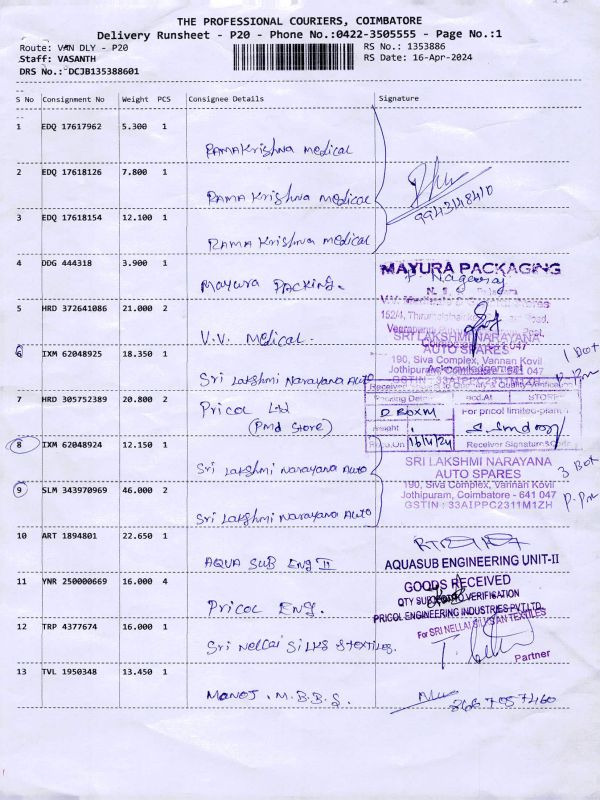 THE PROFESSIONAL COURIERS, COIMBATORE
Delivery Runsheet - P20 - Phone No.:0422-3505555 - Page No.:1
Route: VAN DLY - P20
RS No.: 1353886
Staff: VASANTH
RS Date: 16-Apr-2024
DRS No.: DCJB135388601
S No Consignment No Weight PCS Consignee Details Signature
1 EDQ 17617962 5.300 1
Rama Krishna medical
2 EDQ 17618126 7.800 1
Rama Krishna medical
9943148410
3 EDQ 17618154 12.100 1
Rama Krishna medical
4 DDG 444318 3.900 1
MAYURA PACKAGING
Mayura Packing.
5 HRD 372641086 21.000 2
V.V. medical.
SRI LAKSHMI NARAYANA
AUTO SPARES
6 IXM 62048925 18.350 1
190, Siva Complex, Vannan Kovil
Jothipuram, Coimbatore - 641 047
Sri Lakshmi Narayana Auto
7 HRD 305752389 20.800 2
Pricol Ltd
(Pmd Store)
D BOXM
For pricol limited-plant
16/4/24
Receiver Signature
8 IXM 62048924 12.150 1
Sri Lakshmi Narayana Auto
SRI LAKSHMI NARAYANA
AUTO SPARES
3 Box
9 SLM 343970969 46.000 2
190, Siva Complex, Vannan Kovil
Jothipuram, Coimbatore - 641 047
GSTIN : 33AIPPC2311M1ZH
Sri Lakshmi Narayana Auto
10 ART 1894801 22.650 1
Aqua Sub Eng II
AQUASUB ENGINEERING UNIT-II
11 YNR 250000669 16.000 4
GOODS RECEIVED
Pricol Eng.
PRICOL ENGINEERING INDUSTRIES PVT LTD
12 TRP 4377674 16.000 1
Sri Nellai Silks & Textiles.
Partner
13 TVL 1950348 13.450 1
Manoj. M.B.B.S.